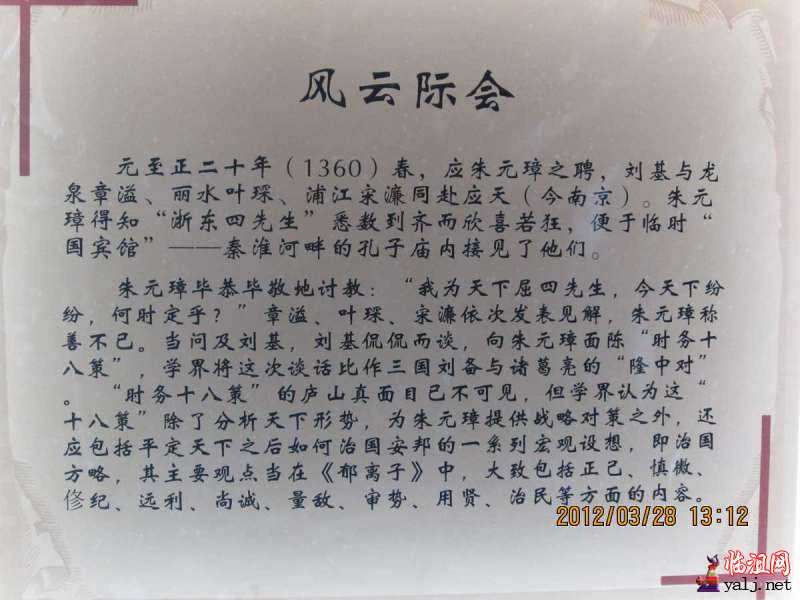 风云际会
元至正二十年（1360）春，应朱元璋之聘，刘基与龙
泉章溢、丽水叶琛、浦江宋濂同赴应天（今南京）。朱元
璋得知“浙东四先生”悉数到齐而欣喜若狂，便于临时“
国宾馆”——秦淮河畔的孔子庙内接见了他们。
朱元璋毕恭毕敬地讨教：“我为天下屈四先生，今天下纷
纷，何时定乎？”章溢、叶琛、宋濂依次发表见解，朱元璋称
善不已。当问及刘基，刘基侃侃而谈，向朱元璋面陈“时务十
八策”，学界将这次谈话比作三国刘备与诸葛亮的“隆中对”
。“时务十八策”的庐山真面目已不可见，但学界认为这“
十八策”除了分析天下形势，为朱元璋提供战略对策之外，还
应包括平定天下之后如何治国安邦的一系列宏观设想，即治国
方略，其主要观点当在《郁离子》中，大致包括正己、慎微、
修纪、远利、尚诚、量敌、审势、用贤、治民等方面的内容。
2012/03/28 13:12
临沮网
yalj.net